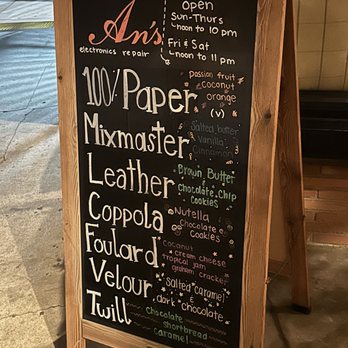 An's
electronics repair
Open
Sun-Thurs
noon to 10 pm
Fri & Sat
noon to 11 pm
100% Paper
passion fruit
coconut
orange
(v)
Mixmaster
Salted butter
Vanilla
Cinnamon
Leather
Brown Butter
& chocolate chip
cookies
Coppola
Nutella
Chocolate &
Cookies
Foulard
coconut
cream cheese
tropical jam
graham cracker
Velour
Salted Caramel
&
dark chocolate
Twill
chocolate
shortbread
caramel